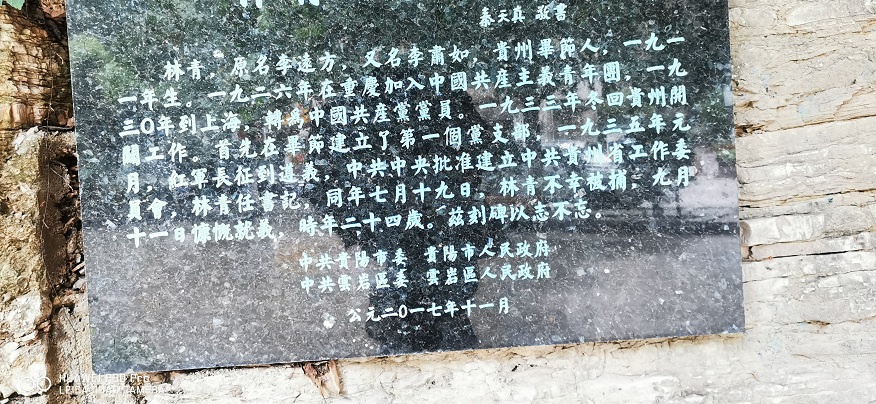 秦天真 敬書
林青，原名李遠方，又名李肅如，貴州畢節人，一九一
一年生。一九二六年在重慶加入中國共産主義青年團，一九
三〇年到上海，轉爲中國共産黨黨員。一九三三年冬回貴州開
闢工作，首先在畢節建立了第一個黨支部，一九三五年元
月，紅軍長征到遵義，中共中央批准建立中共貴州省工作委
員會，林青任書記，同年七月十九日，林青不幸被捕，九月
十一日慷慨就義，時年二十四歲。兹刻碑以志不忘。
中共貴陽市委 貴陽市人民政府
中共雲岩區委 雲岩區人民政府
公元二〇一七年十一月